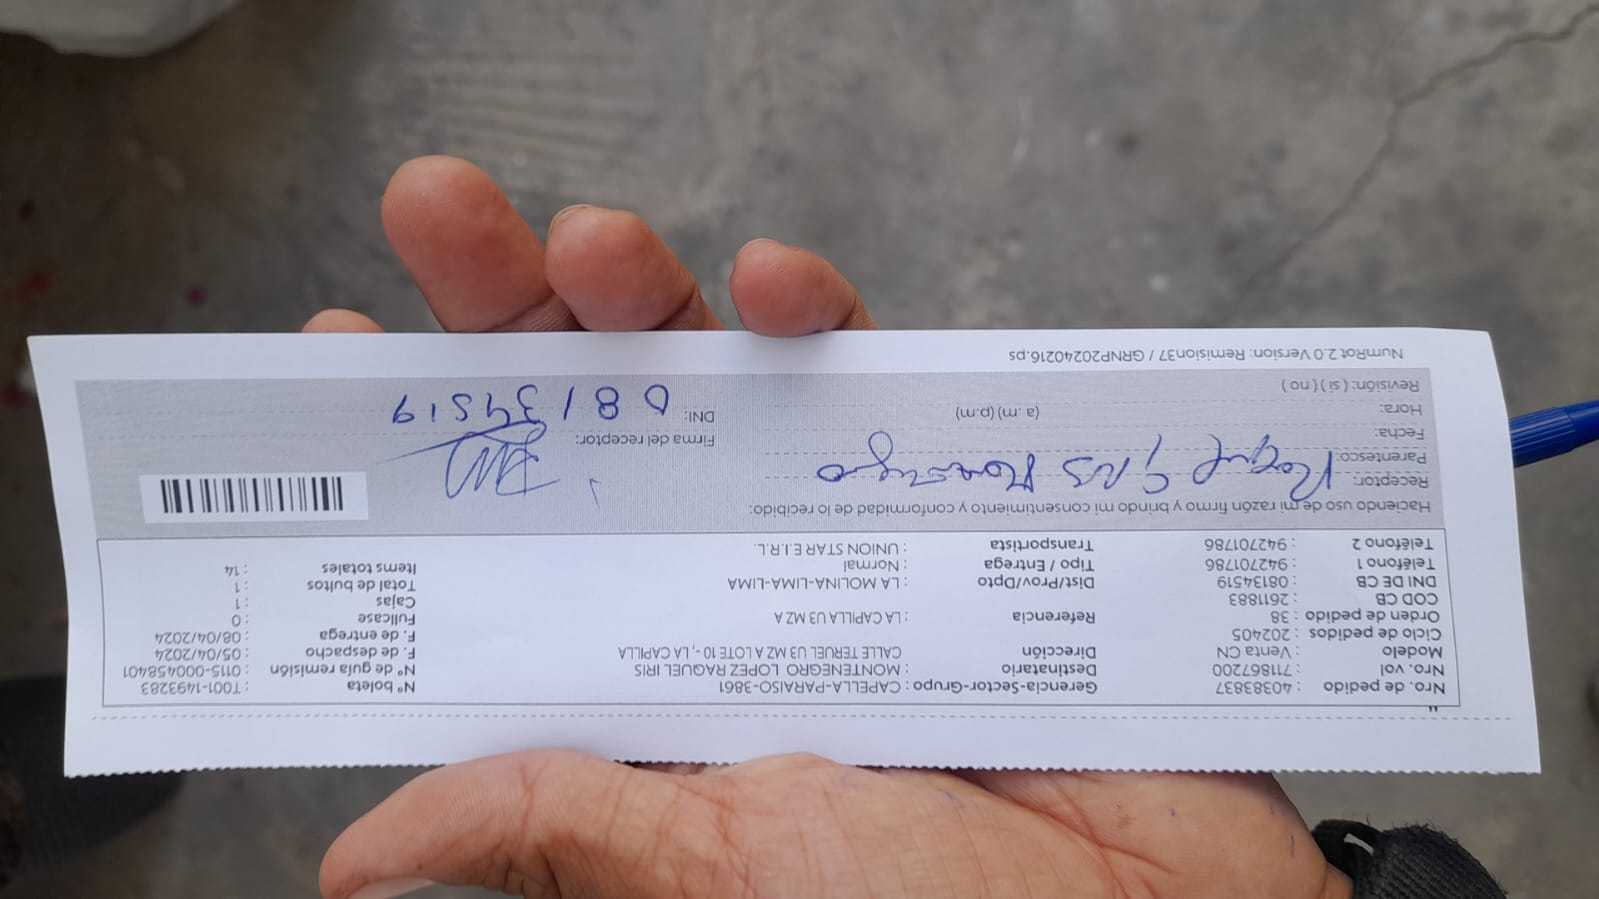 "
Nro. de pedido : 40383837 Gerencia-Sector-Grupo : CAPELLA-PARAISO-3861 Nº boleta : T001-1493283
Nro. vol : 711867200 Destinatario : MONTENEGRO LOPEZ RAQUEL IRIS Nº de guía remisión : 0115-000458401
Modelo : Venta CN Dirección CALLE TERUEL U3 MZ A LOTE 10 -, LA CAPILLA F. de despacho : 05/04/2024
Ciclo de pedidos : 202405 F. de entrega : 08/04/2024
Orden de pedido : 38 Referencia : LA CAPILLA U3 MZ A Fullcase : 0
COD CB : 2611883 Cajas : 1
DNI DE CB : 08134519 Dist/Prov/Dpto : LA MOLINA-LIMA-LIMA Total de bultos : 1
Teléfono 1 : 942701786 Tipo / Entrega : Normal Items totales : 14
Teléfono 2 : 942701786 Transportista : UNION STAR E.I.R.L.
Haciendo uso de mi razón firmo y brindo mi consentimiento y conformidad de lo recibido:
Receptor:
Parentesco:
Fecha: Firma del receptor:
Hora: (a .m) (p.m) DNI: 08134519
Revisión: ( si ) ( no )
NumRot 2.0 Version: Remision37 / GRNP20240216.ps